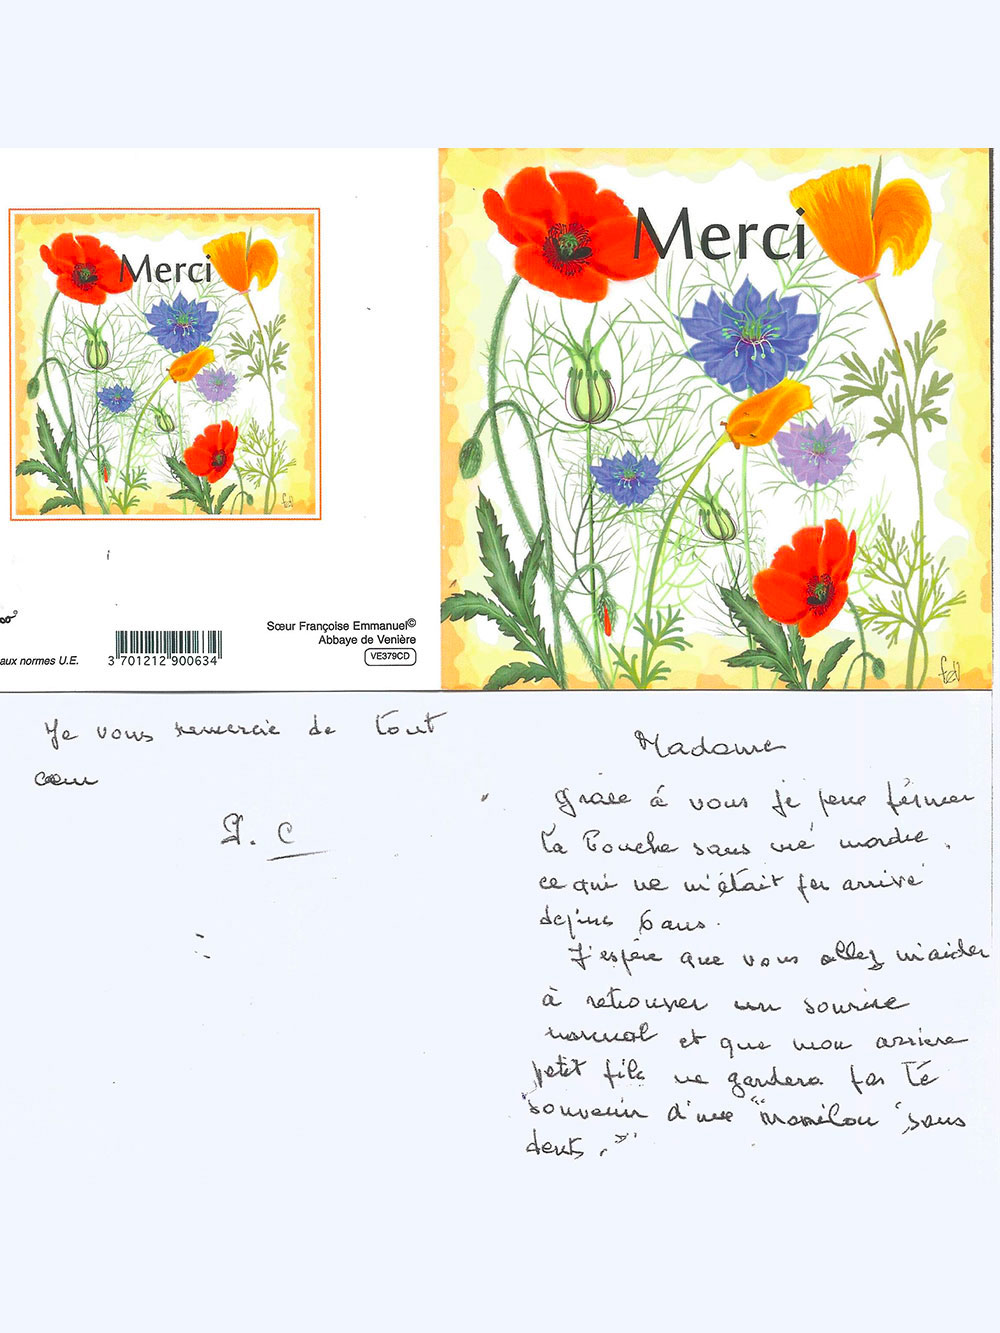 Merci
Merci
Sœur Françoise Emmanuel©
Abbaye de Venière
VE379CD
aux normes U.E.
3 701212 900634
Madame
Grâce à vous je peux fermer
la bouche sans me mordre,
ce qui ne m'était pas arrivé
depuis 6 ans.
J'espère que vous allez m'aider
à retrouver un sourire
normal et que mon arrière
petit fils ne gardera pas le
souvenir d'une "Mamilou" sans
dents."
Je vous remercie de tout
cœur
J. C